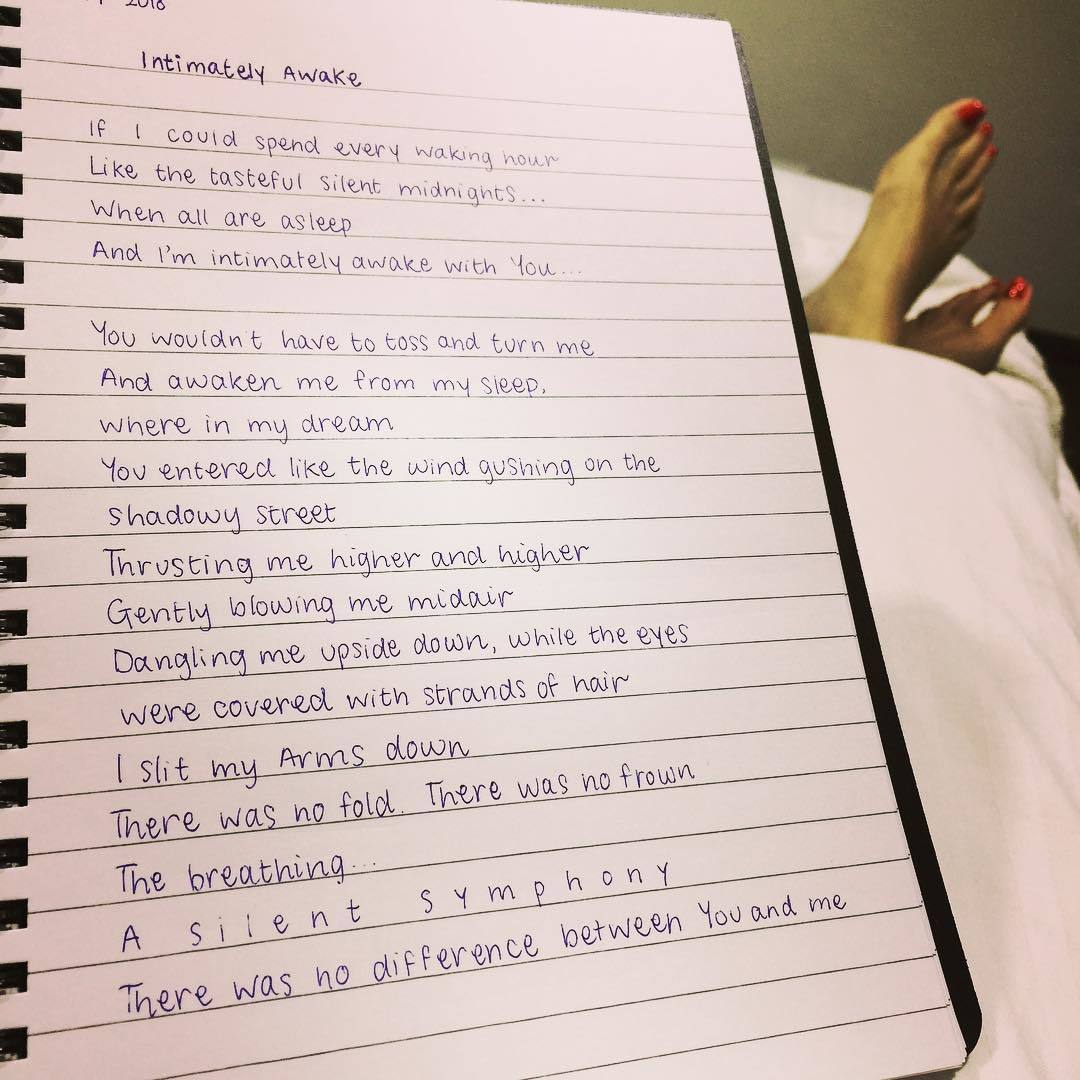 2018
Intimately Awake
If I could spend every waking hour
Like the tasteful silent midnights...
When all are asleep
And I'm intimately awake with You...
You wouldn't have to toss and turn me
And awaken me from my sleep,
where in my dream
You entered like the wind gushing on the
shadowy street
Thrusting me higher and higher
Gently blowing me midair
Dangling me upside down, while the eyes
were covered with strands of hair
I slit my Arms down
There was no fold. There was no frown
The breathing...
A silent symphony
There was no difference between You and me